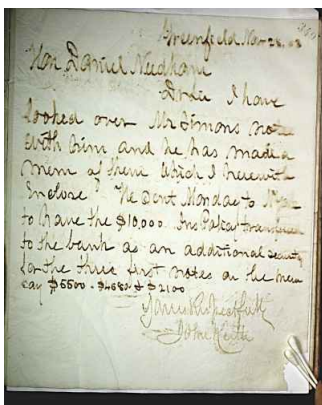 Greenfield. Nov 28.
Hon Daniel Needham
I have
looked over Mr Simons notes
with him and he has made a
mem of them which I herewith
Inclose He Sent Monday to
to have the $10,000. Ins Policy transferred
to the bank as an additional security
for the three first notes on the mem
say $5500 - $4680 & $2100
Yours Respectfully
John Keith